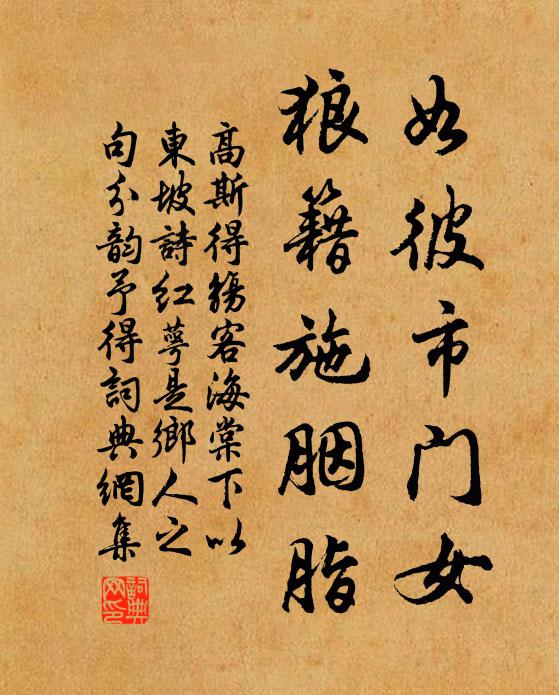 如彼市门女
狼籍施胭脂
高斯得觞客海棠下以
東坡詩红萼是鄉人之
句分韵予得詞典網集
詞典网印